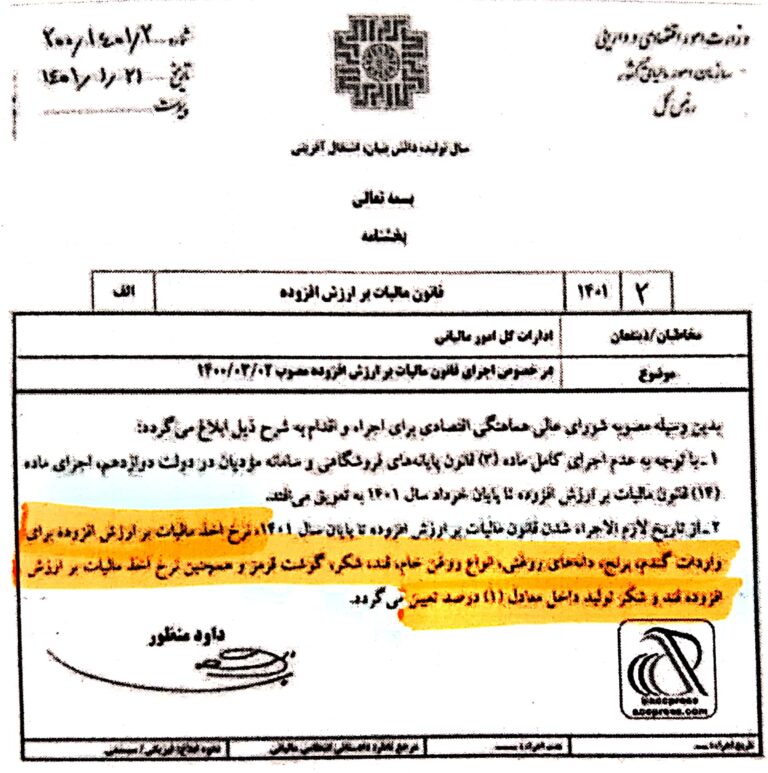 وزارت امور اقتصادی و دارایی
سازمان امور مالیاتی کشور
رئیس کل
شماره ۲۰۰/۱۴۰۱/۲
تاریخ ۱۴۰۱/۱/۲۱
پیوست
سال تولید، دانش بنیان، اشتغال آفرینی
بسمه تعالی
بخشنامه
۲ ۱۴۰۱ قانون مالیات بر ارزش افزوده الف
مخاطبان/ذینفعان ادارات کل امور مالیاتی
موضوع در خصوص اجرای قانون مالیات بر ارزش افزوده مصوب ۱۴۰۰/۰۳/۰۲
بدین وسیله مصوبه شورای عالی هماهنگی اقتصادی برای اجراء و اقدام به شرح ذیل ابلاغ می‌گردد:
۱ـ با توجه به عدم اجرای کامل ماده (۳) قانون پایانه‌های فروشگاهی و سامانه مؤدیان در دولت دوازدهم، اجرای ماده
(۱۴) قانون مالیات بر ارزش افزوده تا پایان خرداد سال ۱۴۰۱ به تعویق می‌افتد.
۲ـ از تاریخ لازم الاجراء شدن قانون مالیات بر ارزش افزوده تا پایان سال ۱۴۰۱، نرخ اخذ مالیات بر ارزش افزوده برای
واردات گندم، برنج، دانه‌های روغنی، انواع روغن خام، قند، شکر، گوشت قرمز و همچنین نرخ اخذ مالیات بر ارزش
افزوده قند و شکر تولید داخل معادل (۱) درصد تعیین می‌گردد.
داود منظور
تاریخ اجراء: مدت اجراء: مرجع ناظر: دادستانی انتظامی مالیاتی نحوه ابلاغ: فیزیکی/سیستمی